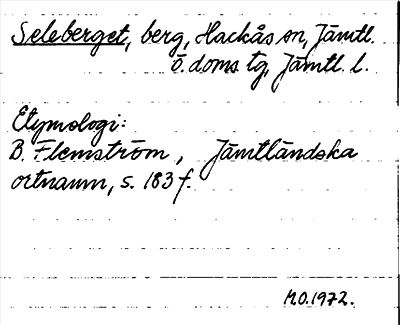 Seleberget, berg, Hackås sn, Jämtl.
ö. doms tg, Jämtl. l.
Etymologi:
B. Flemström, Jämtländska
ortnamn, s. 183 f.
M.O. 1972.